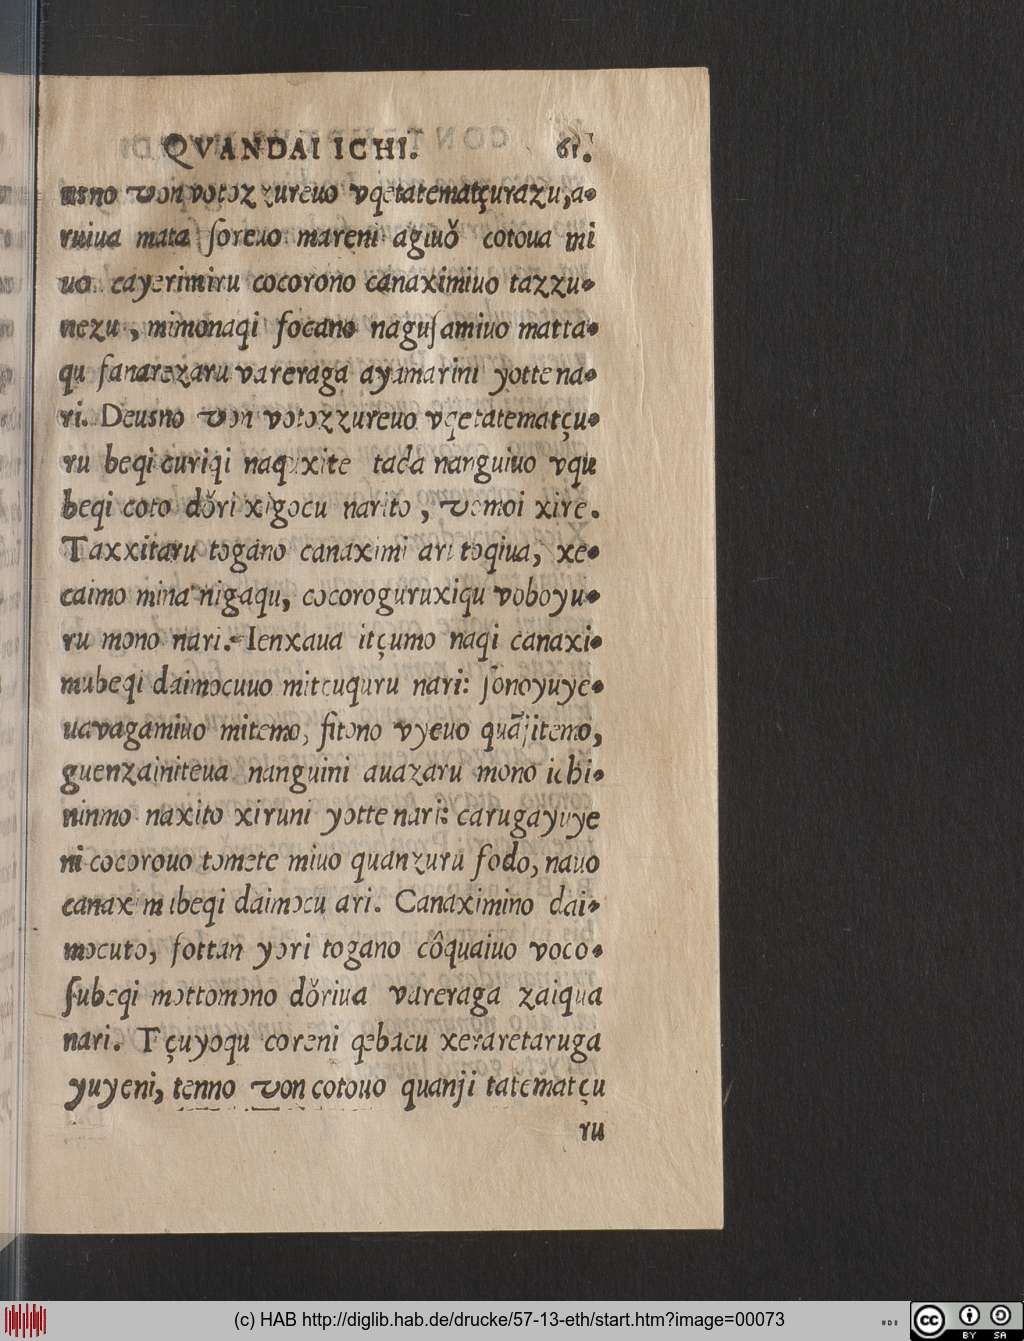 QVANDAI ICHI. 61.
usno von votozzureuo vqetatematçurazu, a-
ruiua mata ſoreuo mareni agiuǒ cotoua mi
uo cayerimiru cocorono canaximiuo tazzu-
nezu, mimonaqi focano naguſamiuo matta-
qu fanarezaru vareraga ayamarini yotte na-
ri. Deusno von votozzureuo vqetatematçu-
ru beqi curiqi naqu xite tada nanguiuo vqu
beqi coto dǒri xigocu narito, vomoi xire.
Taxxitaru togano canaximi ari toqiua, xe-
caimo mina nigaqu, cocoroguruxiqu voboyu-
ru mono nari. Ienxaua itçumo naqi canaxi-
mubeqi daimocuuo mitçuquru nari: ſonoyuye-
ua vagamiuo mitemo, fitono vyeuo quãjitemo,
guenzainiteua nanguini auazaru mono ichi-
ninmo naxito xiruni yotte nari: carugayuye
ni cocorouo tomete miuo quanzuru fodo, nauo
canaximubeqi daimocu ari. Canaximino dai-
mocuto, fottan yori togano côquaiuo voco-
ſubeqi mottomono dǒriua vareraga zaiqua
nari. Tçuyoqu coreni qebacu xeraretaruga
yuyeni, tenno von cotouo quanji tatematçu
ru
(c) HAB http://diglib.hab.de/drucke/57-13-eth/start.htm?image=00073
cc BY SA